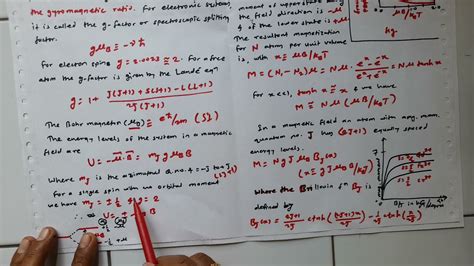 the gyromagnetic ratio. For electronic system,
it is called the g-factor or spectroscopic splitting
factor.
gμB ≡ -γħ
For electron spin g = 2.0023 ≅ 2. For a free
atom the g-factor is given by the Landé eqn
g = 1 + J(J+1) + S(S+1) - L(L+1) / 2J(J+1)
The Bohr magneton (μB) ≡ eħ/2m (SI)
The energy levels of the system in a magnetic
field are
U = -μ⃗.B⃗ = mJ g μB B
Where mJ is the azimuthal q. no. & = -J to J
For a single spin with no orbital moment
we have mJ = ± ½ & g = 2
U = ± B
the field direction is
of the lower state is
The resultant magnetization
for N atoms per unit volume
is, with x ≡ μB/kBT
M = (N1 - N2)μ = Nμ (e^x - e^-x)/(e^x + e^-x) = Nμ tanh x
For x<<1, tanh x ≅ x & we have
M ≅ Nμ (μB/kBT)
In a magnetic field an atom with ang. mom.
quantum no. J has (2J+1) equally spaced
energy levels.
M = NgJμB BJ(x)
Where the Brillouin fn BJ is
defined by
BJ(x) = (2J+1)/2J ctnh ((2J+1)x/2J) - 1/2J ctnh (x/2J)